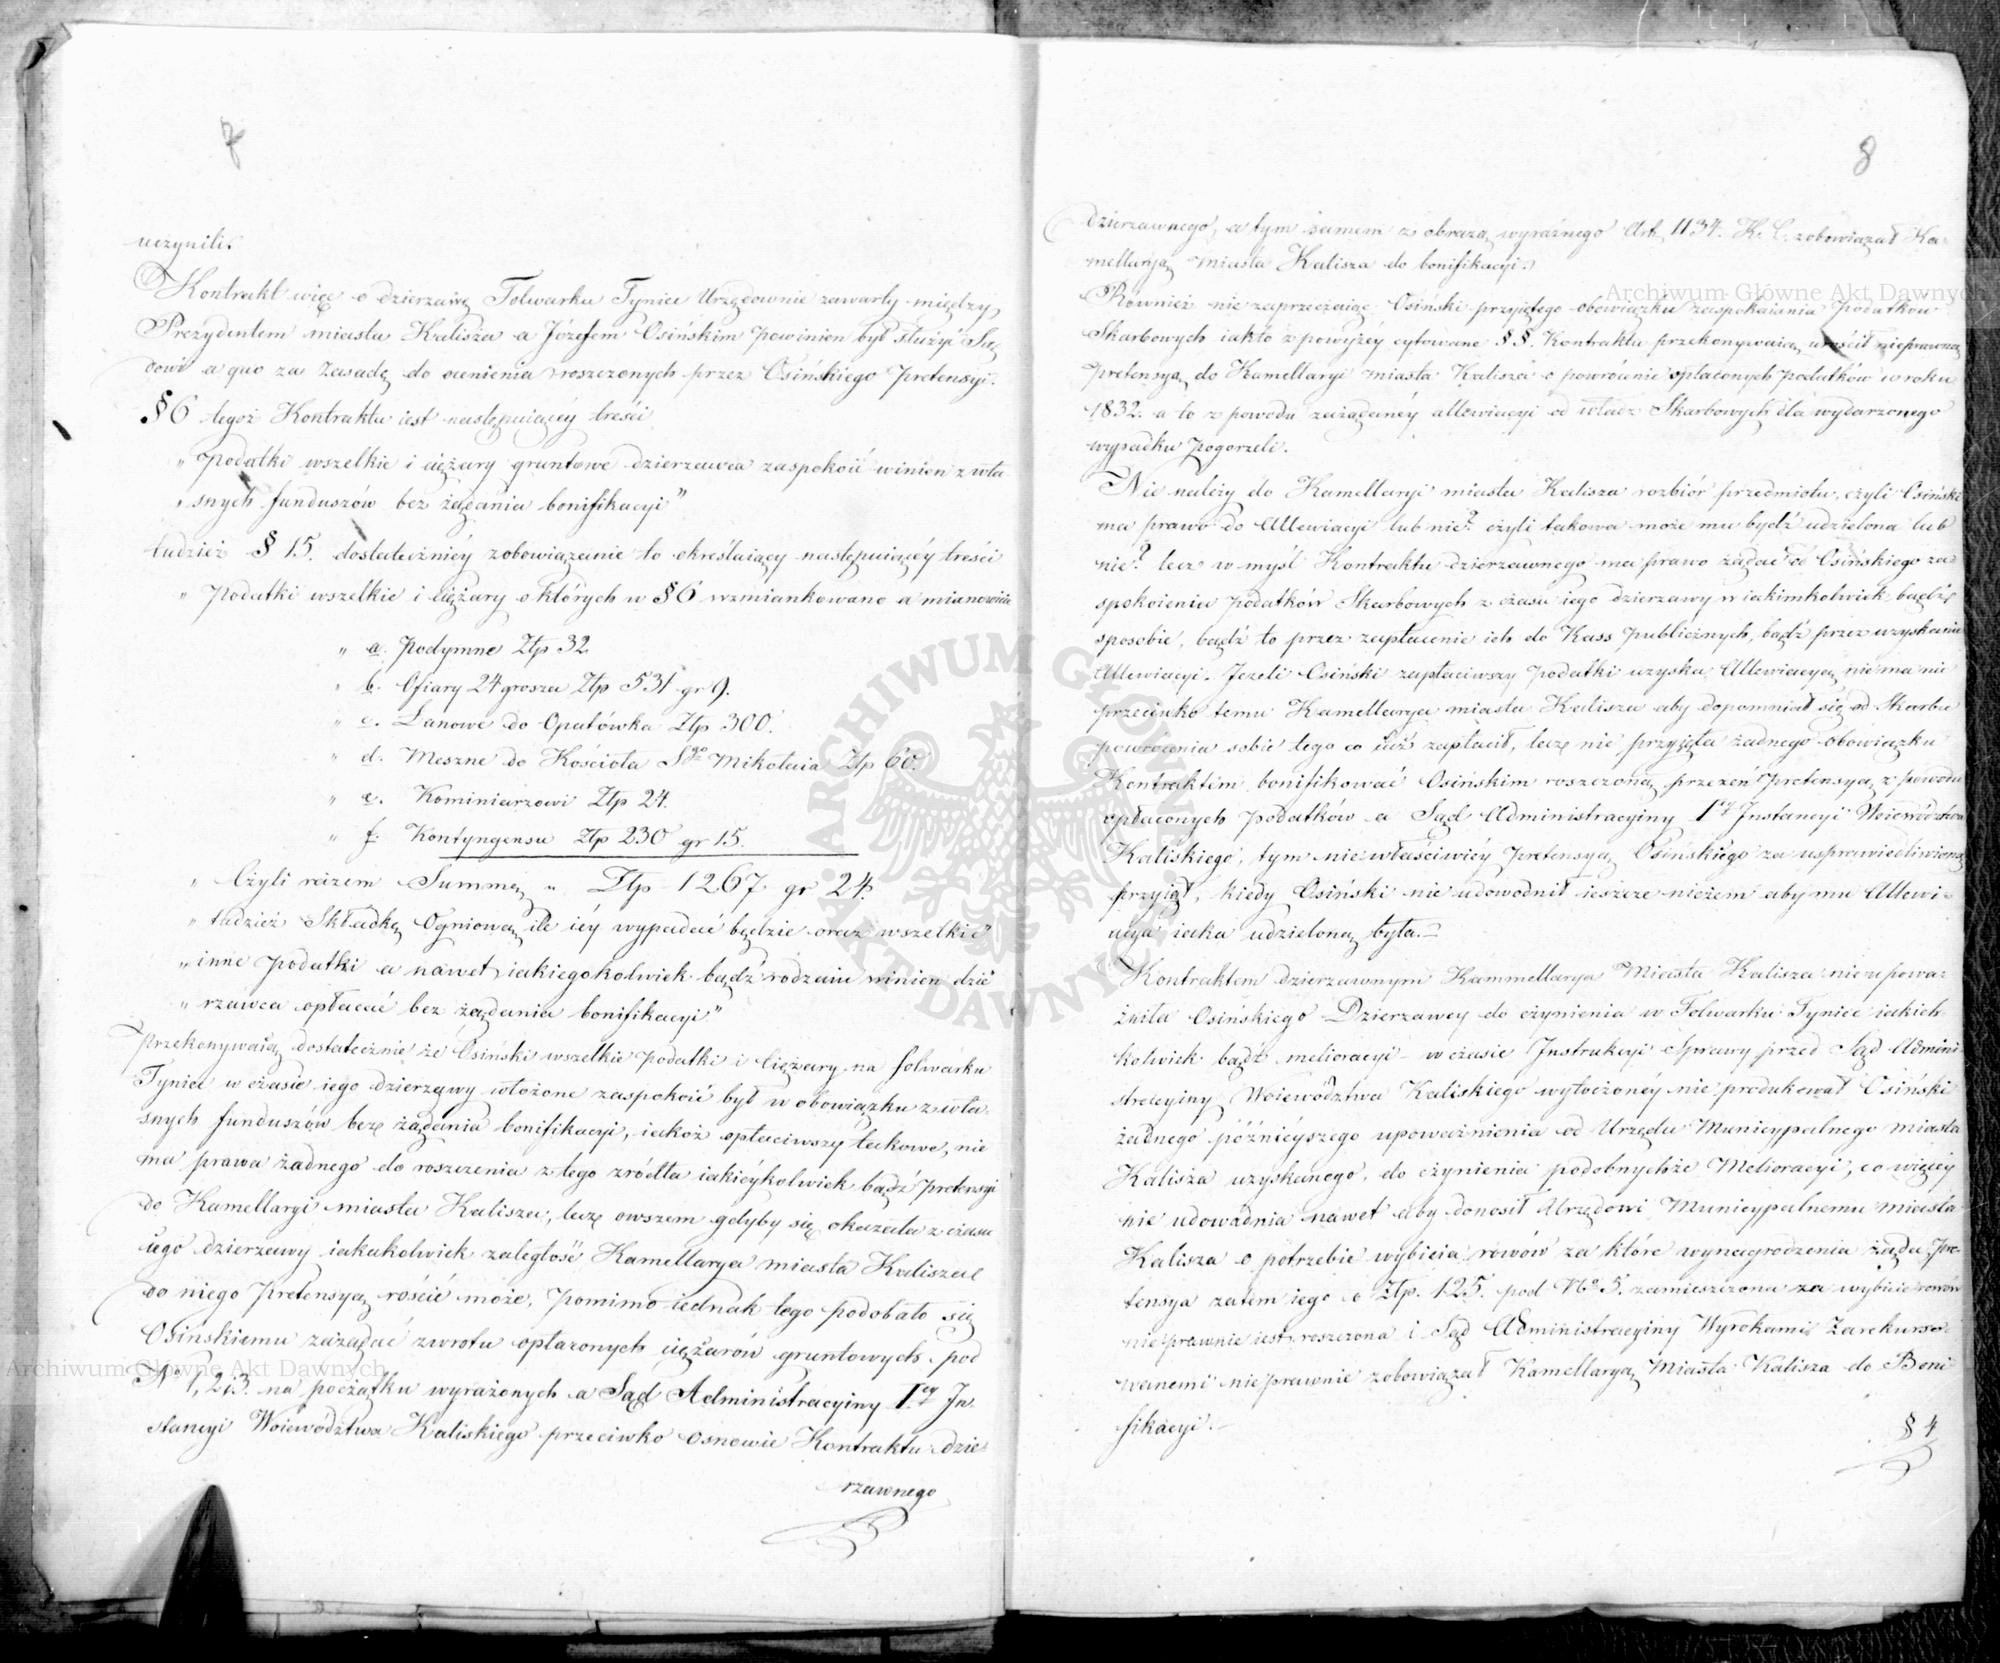 7
uczynili.
Kontrakt więc o dzierzawę Folwarku Tyniec Urzędownie zawarty między
Prezydentem miasta Kalisza a Józefem Osińskim powinien był służyć Są
dowi a quo za Zasadę do ocenienia roszczonych przez Osińskiego Pretensyi.
§ 6 tegoż Kontraktu iest następuiącey treści
„ Podatki wszelkie i ciężary gruntowe dzierzawca zaspokoić winien z wła
„ snych funduszów bez żądania bonifikacyi”
tudzież § 15. dostateczniéy zobowiązanie to określaiący następuiącéy treści
„ Podatki wszelkie i ciężary o których w § 6 wzmiankowano a mianowicie
„ a. Podymne Złp 32.
„ b. Ofiary 24 grosza Złp 531 gr 9.
„ c. Łanowe do Opatówka Złp 300.
„ d. Meszne do Kościoła Sgo Mikołaia Złp 60.
„ e. Kominiarzowi Złp 24.
„ f. Kontyngensu Złp 230 gr 15.
„ Czyli razem Summę „ Złp 1267 gr 24.
„ tudzież Składkę Ogniową ile iéy wypadać będzie oraz wszelkie”
„ inne podatki a nawet iakiegokolwiek bądź rodzaiu winien dzie
„ rzawca opłacać bez żądania bonifikacyi”
przekonywaią dostatecznie że Osiński wszelkie podatki i Ciężary na folwarku
Tyniec w czasie iego dzierzawy włożone zaspokoić był w obowiązku z wła-
snych funduszów bez żądania bonifikacyi, iakoż opłaciwszy takowe, nie
ma prawa żadnego do roszczenia z tego zródła iakieykolwiek bądź pretensyi
do Kamellaryi miasta Kalisza, lecz owszem gdyby się okazała z czasu
iego dzierzawy iakakolwiek zaległość Kamellarya miasta Kalisza
do niego Pretensyą rościć może, pomimo iednak tego podobało się
Osińskiemu zażądać zwrotu opłaconych ciężarów gruntowych pod
No 1, 2 i 3. na początku wyrażonych a Sąd Administracyiny 1ey In
stancyi Woiewództwa Kaliskiego przeciwko osnowie Kontraktu dzie-
rzawnego
8
dzierzawnego, a tym samem z obrazą wyraźnego Art. 1134. K. C. zobowiązał Ka-
mellaryą miasta Kalisza do bonifikacyi.
Również nie zaprzeczaiąc Osiński przyiętego obowiązku zaspokaiania Podatków
Skarbowych iak to z powyżéy cytowane §§. Kontraktu przekonywaią urościł nieprawną
pretensyą do Kamellaryi miasta Kalisza o powrócenie opłaconych podatków w roku
1832. a to z powodu zażądanéy allewiacyi od władz Skarbowych dla wydarzonego
wypadku pogorzeli.
Nie należy do Kamellaryi miasta Kalisza rozbiór przedmiotu, czyli Osiński
ma prawo do Allewiacyi lub nie? czyli takowa może mu bydź udzielona lub
nie? lecz w myśl Kontraktu dzierzawnego ma prawo żądać od Osińskiego za-
spokoienia podatków Skarbowych z czasu iego dzierzawy w iakimkolwiek bądź
sposobie, bądź to przez zapłacenie ich do Kass publicznych, bądź przez uzyskanie
Allewiacyi. Jeżeli Osiński zapłaciwszy podatki uzyska Allewiacyą nie ma nic
przeciwko temu Kamellarya miasta Kalisza aby dopomniał się od Skarbu
powrócenia sobie tego co iuż zapłacił, lecz nie przyjęła żadnego obowiązku
Kontraktem bonifikować Osińskim roszczoną przezeń Pretensyą z powodu
opłaconych podatków a Sąd Administracyiny 1ey Instancyi Woiewództwa
Kaliskiego, tym niewłaściwiéy pretensyą Osińskiego za usprawiedliwioną
przyiął, kiedy Osiński nie udowodnił ieszcze niczem aby mu Allewi-
acya iaka udzieloną była.—
Kontraktem dzierzawnym Kammellarya Miasta Kalisza nie upowa-
żniła Osińskiego Dzierzawcy do czynienia w Folwarku Tyniec iakich-
kolwiek bądź melioracyi — w czasie Instrukcyi Sprawy przed Sąd Admini-
stracyiny Woiewództwa Kaliskiego wytoczonéy nie produkował Osiński
żadnego późnieyszego upoważnienia od Urzędu Municypalnego miasta
Kalisza uzyskanego, do czynienia podobnychże Melioracyi, co więcéy
nie udowadnia nawet aby donosił Urzędowi Municypalnemu miasta
Kalisza o potrzebie wybicia rowów za które wynagrodzenia żąda, Pre-
tensya zatem iego o Złp. 125. pod No 5. zamieszczona za wybicie rowów
nieprawnie iest roszczona i Sąd Administracyiny Wyrokami Zarekurso-
wanemi nieprawnie zobowiązał Kamellaryą Miasta Kalisza do Boni
fikacyi.—
§ 4
Archiwum Główne Akt Dawnych
Archiwum Główne Akt Dawnych
ARCHIWUM GŁÓWNE AKT DAWNYCH